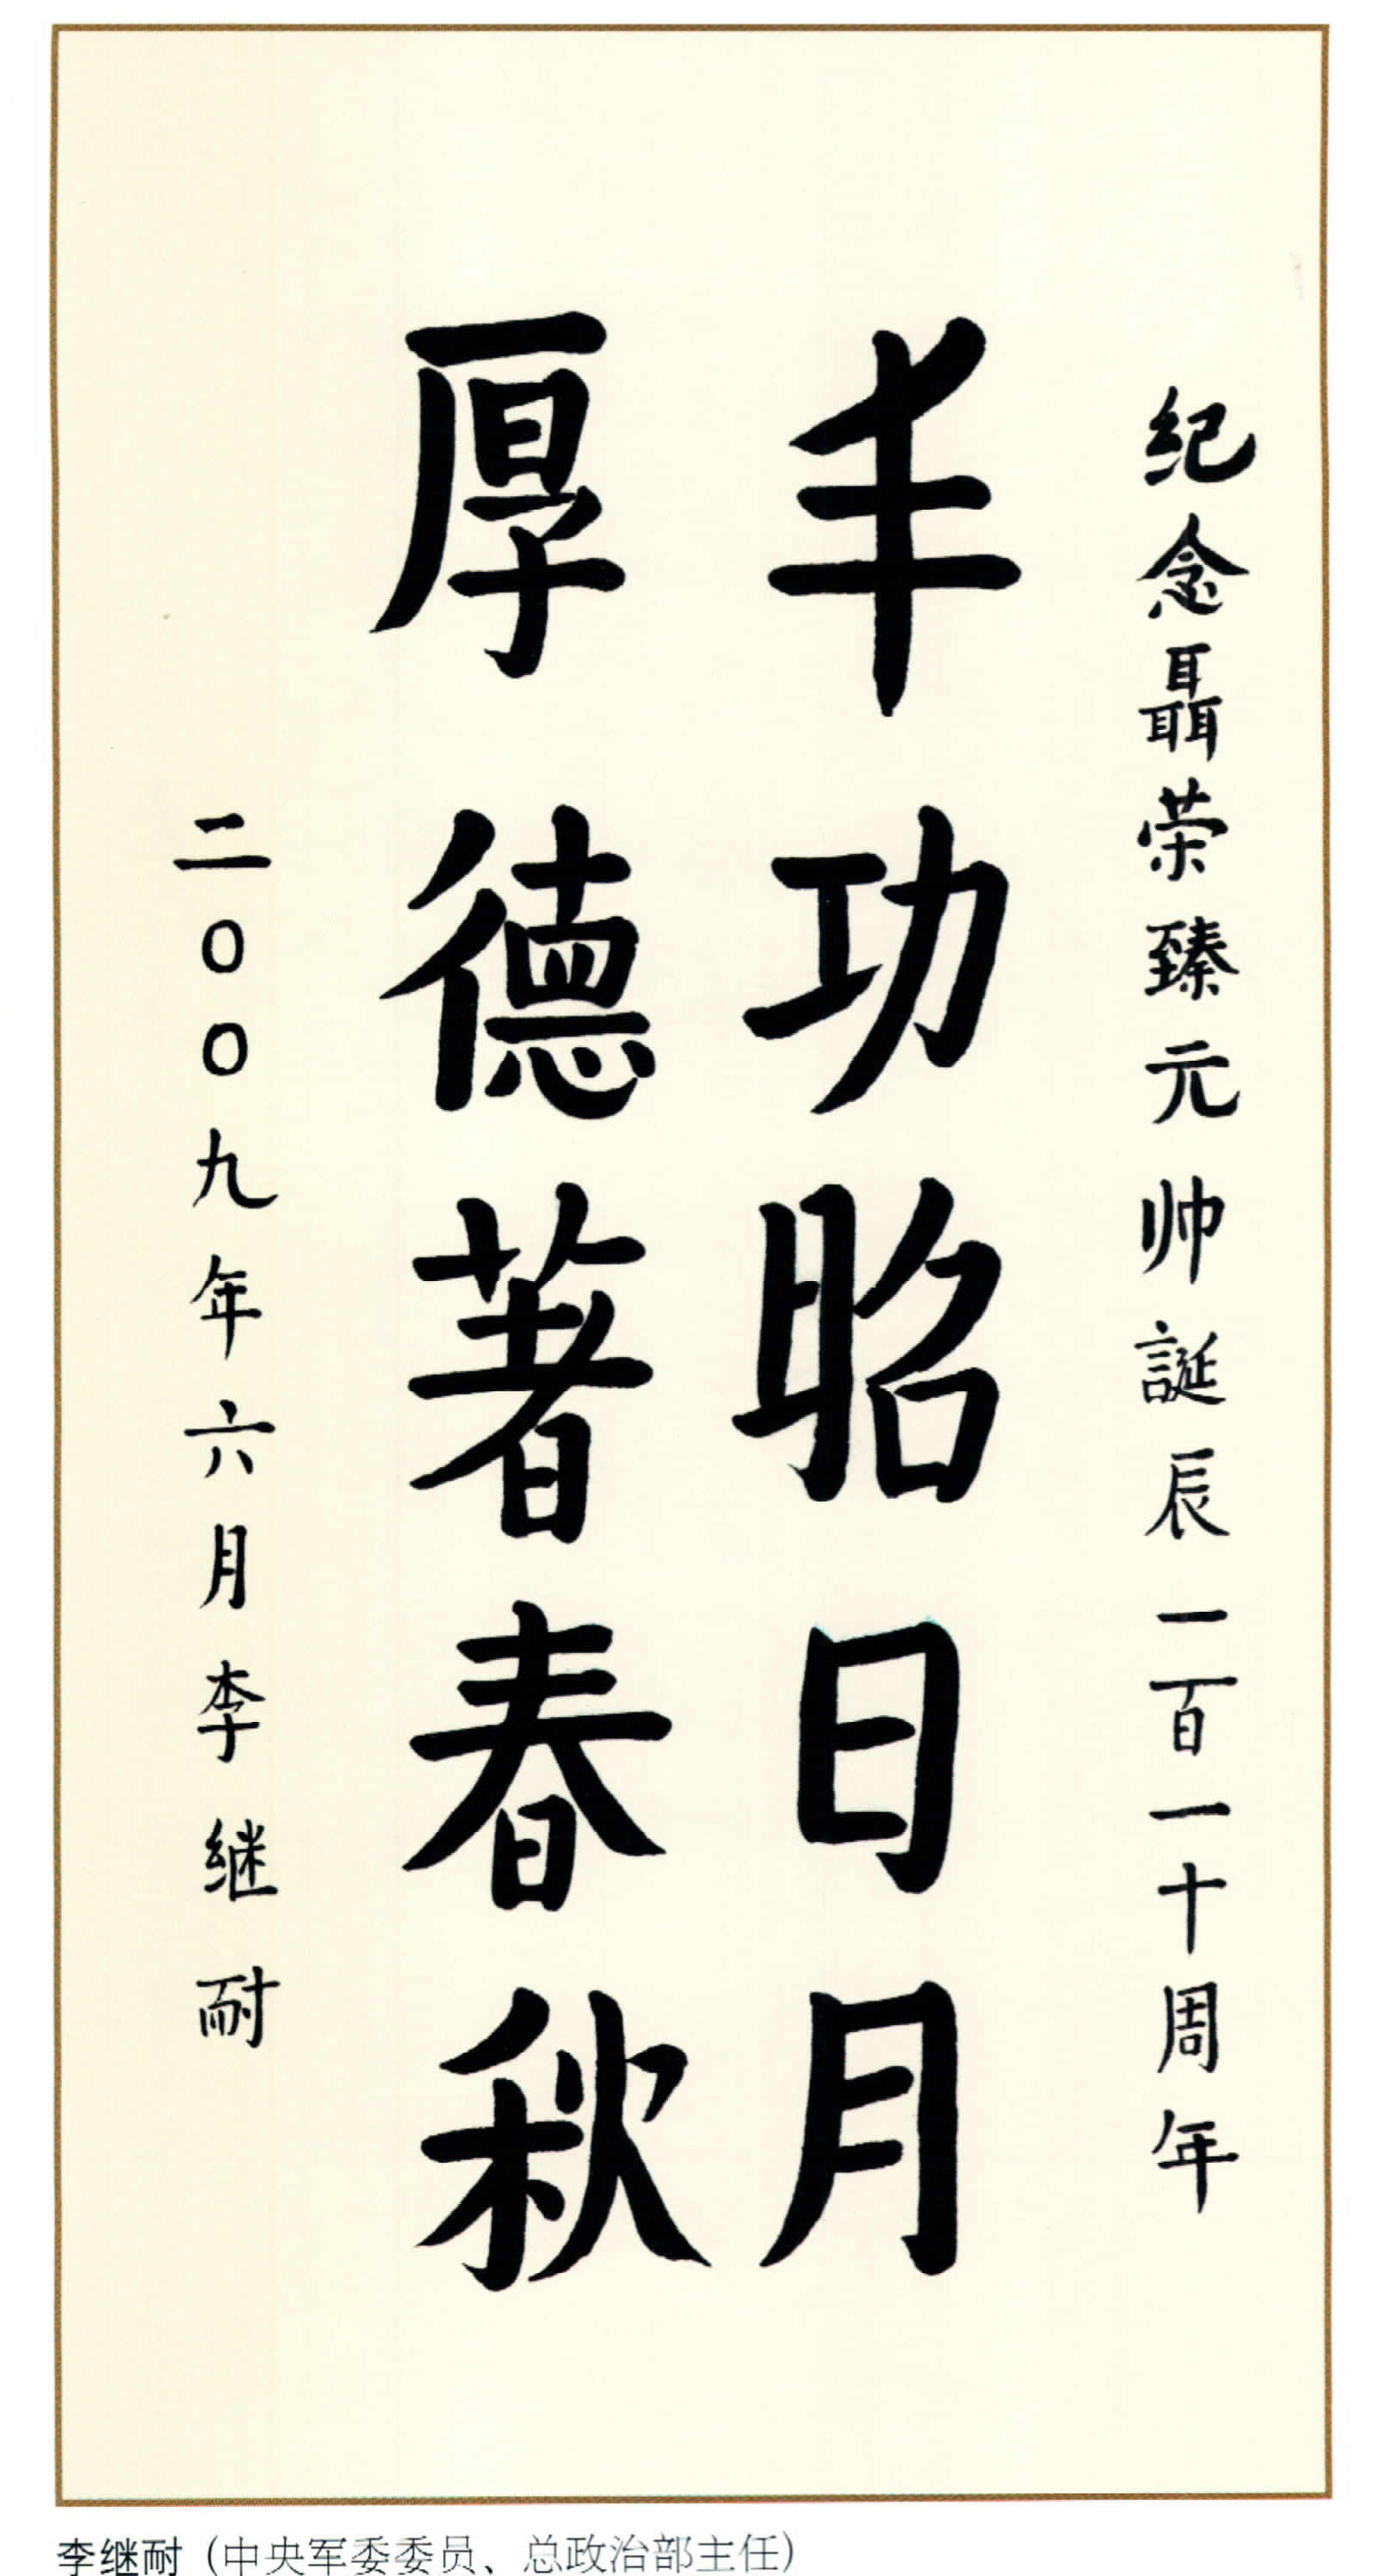 纪念聶荣臻元帅誕辰一百一十周年
丰功昭日月
厚德著春秋
二００九年六月李继耐
李继耐（中央军委委员、总政治部主任）